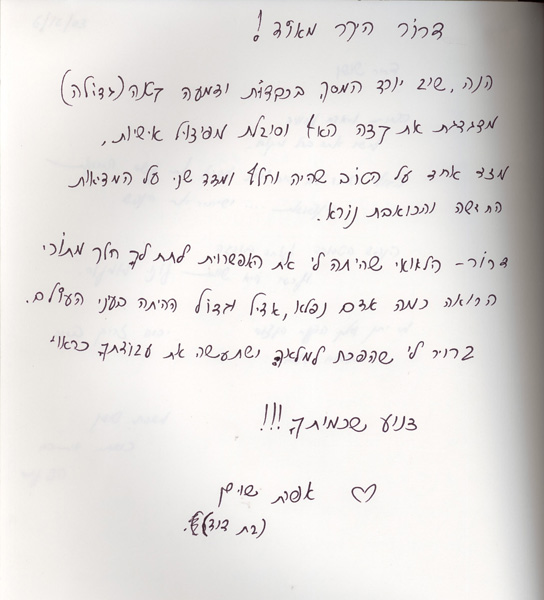 דרור היקר מאוד!
הנה, שוב יורד המסך בכבדות ודמעה קטנה (גדולה)
מדגדגת את קצה האף וסובלת מפיצול אישיות,
מצד אחד על הטוב שהיה וחלף ומצד שני על המציאות
החדשה והכואבת נורא.
דרור- הלוואי שהיתה לי את האפשרות לתת לך חלק מתוכי
הרואה כמה אדם נפלא, אציל וגדול ההיתה בעני העולם.
ברור לי שהפכת למלאך ושתעשה את עבודתך כראוי
צנוע שכמותך!!!
אפרת
(בת דוד)